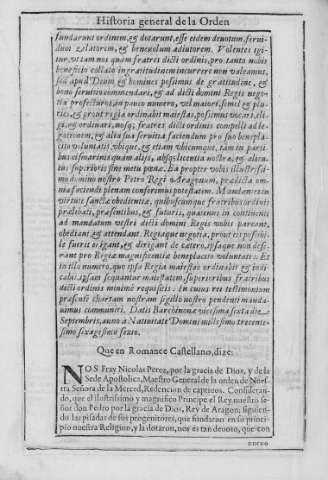 Historia general de la Orden
fundarunt ordinem, & dotarunt, esse eidem deuotum, serui-
dum zelatorem, & beneuolum adiutorem. Volentes igi-
tur, vt tam nos quam fratres dicti ordinis, pro tanto nobis
beneficio collato ingratitudinem incurrere non valeamus,
sed apud Deum & homines possimus de gratitudine, &
bono seruitio commendari, & ad dicti domini Regis nego-
tia profecturos, in pauco numero, vel maiori, semel & plu-
ries, & prout regia ordinabit maiestas, possimus vocari, eli-
gi, & ordinari, nosq; fratres dicti ordinis compelli ad le-
gationem, & alia sua seruitia facienda pro suo beneplá-
cito voluntatis vbique, & etiam vbicumque, tàm in parti-
bus cismarinis quàm alijs, absq; licentia nostra, & alicu-
ius superioris sine metu pœnæ. Ea propter vobis illustrissi-
mo domino nostro Petro Regi Aragonum, prædicta om-
nia faciendi plenam conferimus potestatem. Mandamus in
virtute sanctæ obedientiæ, quibuscumque fratribus ordinis
prælibati, præsentibus, & futuris, quatenus in continenti
ad mandatum vestri dicti domini Regis nobis pareant,
obediant & attendant. Regiaque negotia, prout eis possibi-
le fuerit erigant, & dirigant de cætero, ipsaque non desi-
rant pro Regiæ magnificentiæ beneplacito voluntatis. Et
in illo numero, quo ipsa Regia maiestas ordinabit & indi-
cabit, ipsam sequantur maiestatem superioribus fratribus
dicti ordinis minimè requisitis. In cuius rei testimonium
præsenti chartam nostram sigillo nostro pendenti manda-
uimus communiri. Datis Barchinonæ vicesima sexta die
Septembris, anno a Natiuitate Domini millesimo trecente-
simo sexagesimo sexto.
Que en Romance Castellano, dize:
NOS Fray Nicolas Perez, por la gracia de Dios, y de la
Sede Apostolica, Maestro General de la orden de Nues-
tra Señora de la Merced, Redencion de captiuos. Consideran-
do, que el ilustrissimo y magnifico Principe el Rey nuestro se-
ñor don Pedro por la gracia de Dios, Rey de Aragon, siguien-
do las pisadas de sus progenitores, que fundaron en su princi-
pio nuestra Religion, y la dotaron, nos es tan deuoto, que con